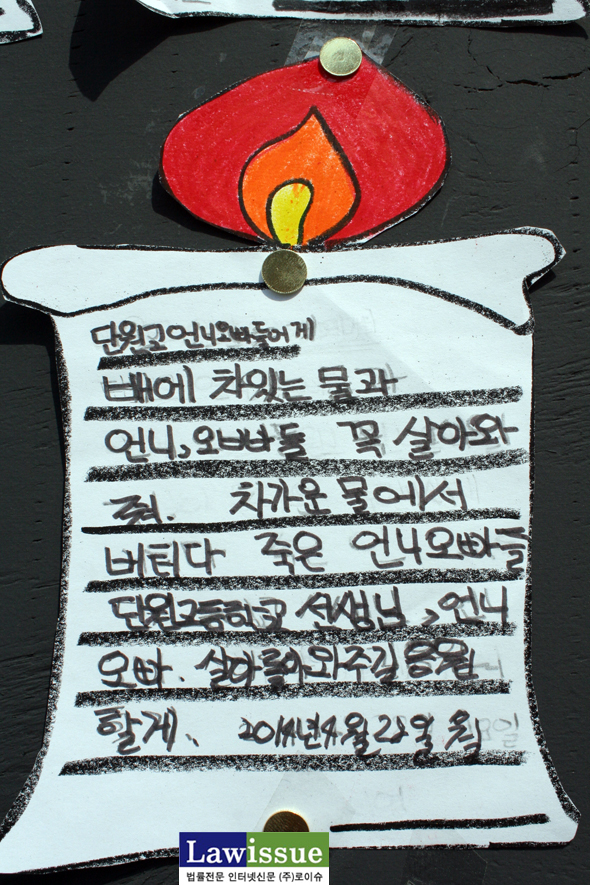 단원고 언니오빠들에게
배에 차있는 물과
언니, 오빠들 꼭 살아와
줘. 차가운 물에서
버티다 죽은 언니오빠들
단원고등학교 선생님, 언니
오빠. 살아돌아와주길 응원
할게. 2014년 4월 22일
Lawissue
법률전문 인터넷신문 (주)로이슈